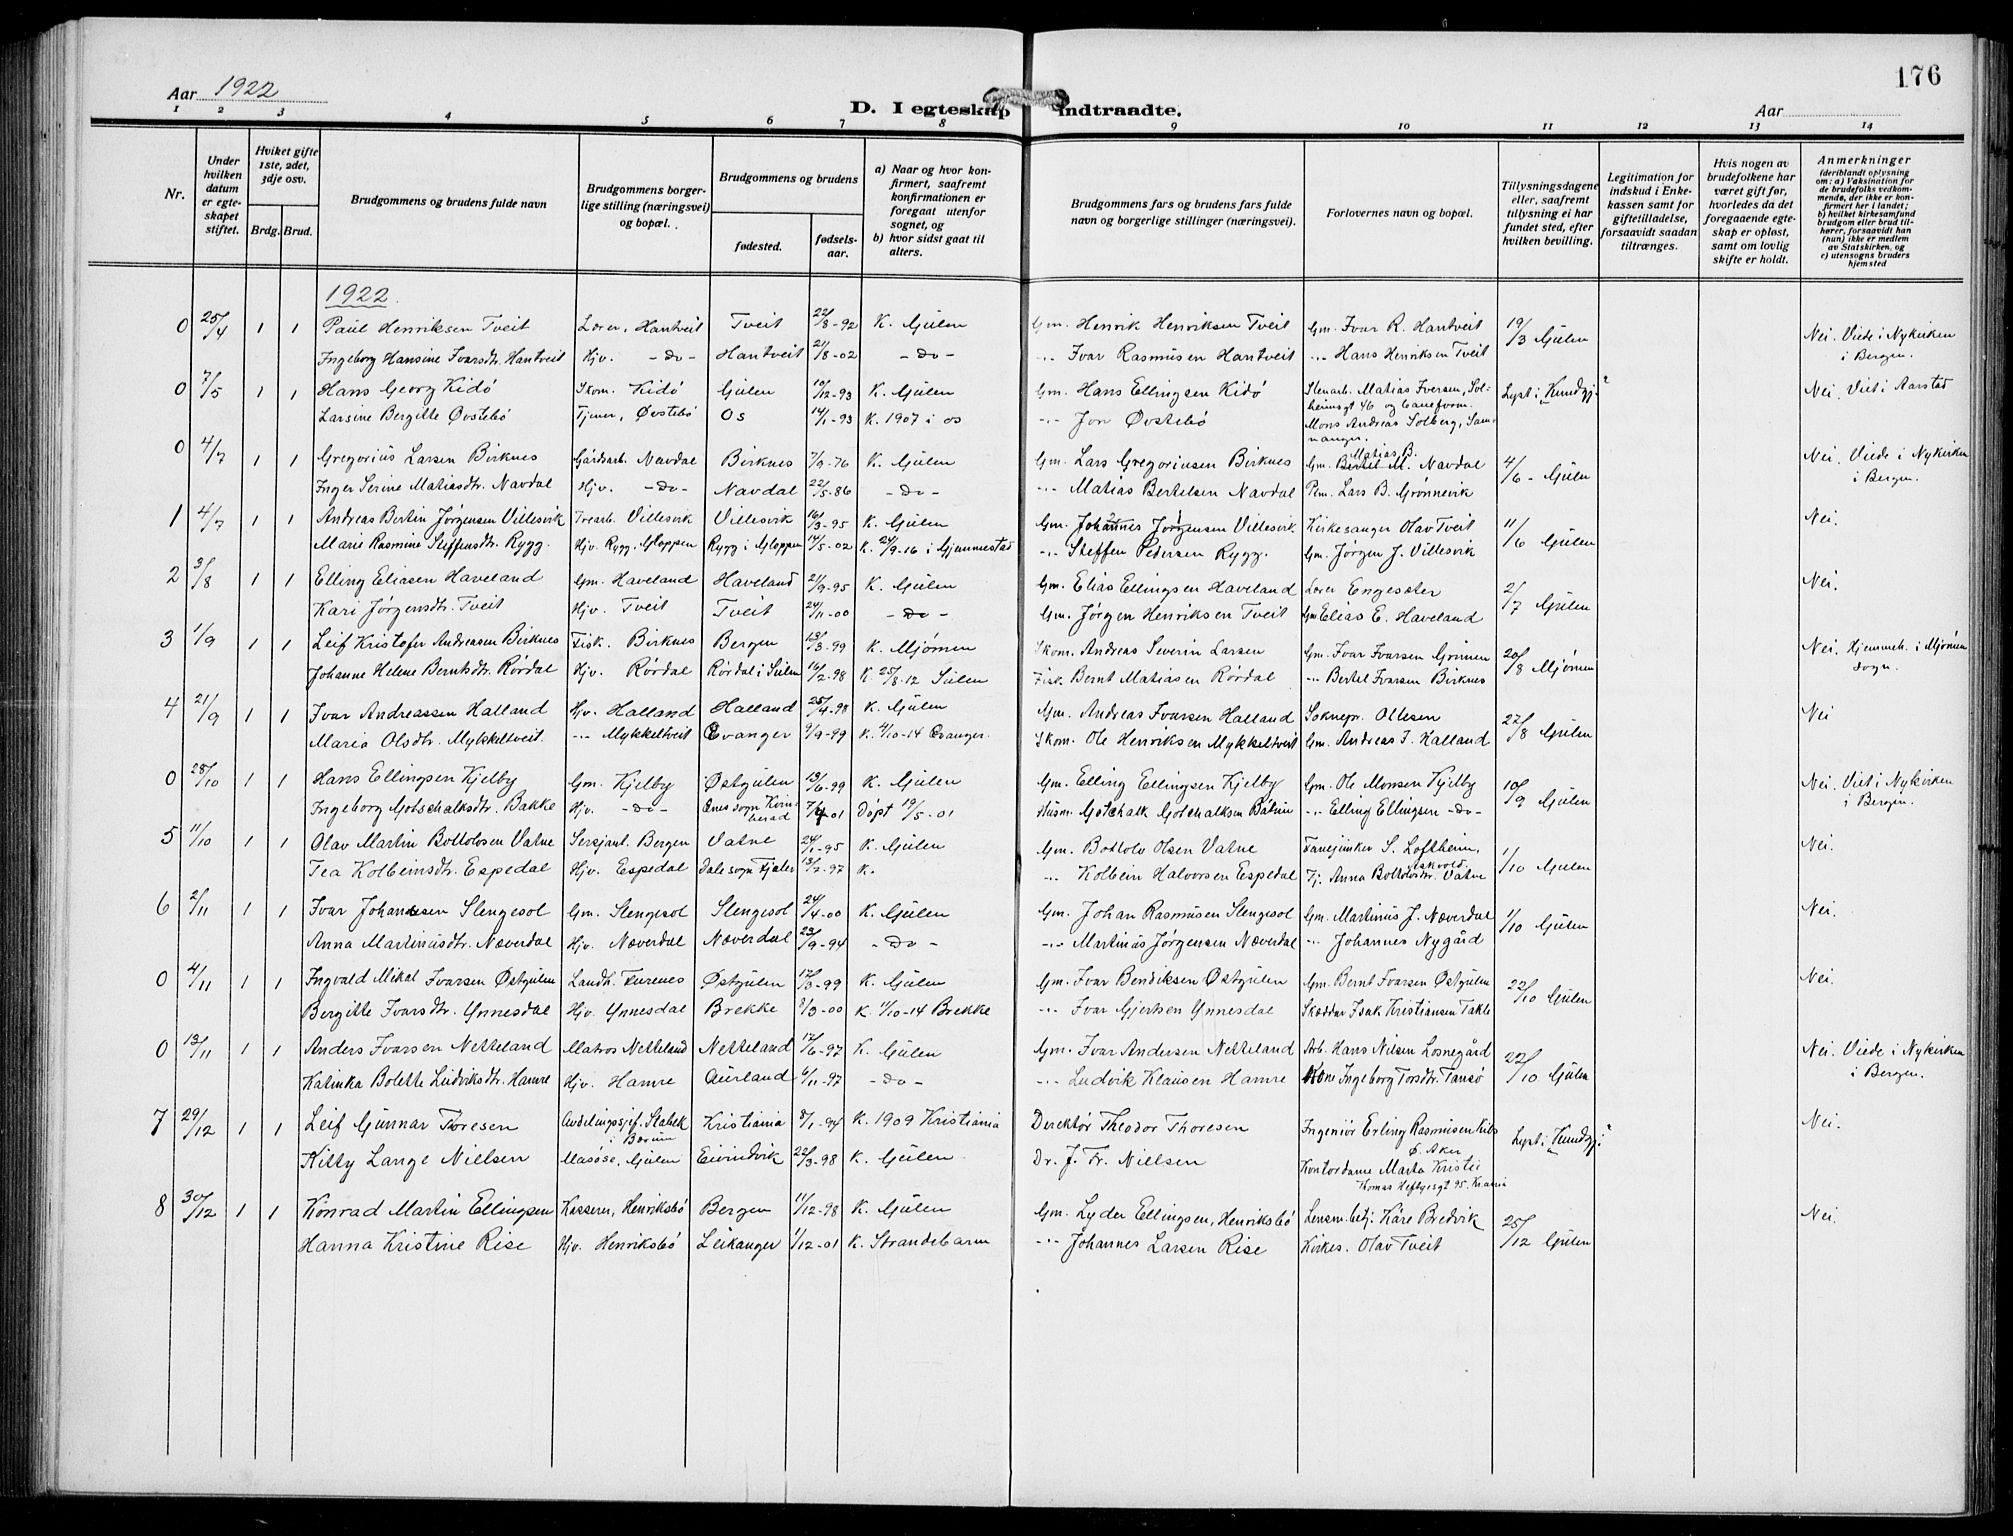 176
Aar 1922
D. I egteskap indtraadte.
Aar
1 2 3 4 5 6 7 8 9 10 11 12 13 14
Nr.
Under hvilken datum er egteskapet stiftet.
Hviket gifte 1ste, 2det, 3dje osv.
Brdg. Brud.
Brudgommens og brudens fulde navn
Brudgommens borgerlige stilling (næringsvei) og bopæl.
Brudgommens og brudens
fødested.
fødselsaar.
a) Naar og hvor konfirmert, saafremt konfirmationen er foregaat utenfor sognet, og
b) hvor sidst gaat til alters.
Brudgommens fars og brudens fars fulde navn og borgerlige stillinger (næringsvei).
Forlovernes navn og bopæl.
Tillysningsdagene eller, saafremt tillysning ei har fundet sted, efter hvilken bevilling.
Legitimation for indskud i Enkekassen samt for giftetilladelse, forsaavidt saadan tiltrænges.
Hvis nogen av brudefolkene har været gift før, hvorledes da det foregaaende egteskap er opløst, samt om lovlig skifte er holdt.
Anmerkninger (deriblandt oplysning om: a) Vaksination for de brudefolks vedkommende, der ikke er konfirmert her i landet; b) hvilket kirkesamfund brudgom eller brud tilhører, forsaavidt han (hun) ikke er medlem av Statskirken, og c) utensogns bruders hjemsted
1922.
0 25/4 1 1 Paul Henriksen Tveit Lærer, Hantveit Tveit 22/8-92 K. Gulen Gm. Henrik Henriksen Tveit Gm. Ivar R. Hantveit 19/3 Gulen Nei. Viede i Nykirken i Bergen.
Ingeborg Hansine Ivarsdtr. Hantveit Hjv. -do- Hantveit 21/8-02 -do- -"- Ivar Rasmusen Hantveit -"- Hans Henriksen Tveit
0 7/5 1 1 Hans Georg Kidø Skom. Kidø Gulen 10/12-93 K. Gulen Gm. Hans Ellingsen Kidø Stenarb. Matias Iversen, Solheimsgt 46 Lyst i Kundgj. Nei. Viet i Aarstad
Larsine Bergitte Øvstebø Tjener, Øvstebø Os 14/1-93 K. 1907 i Os -"- Jon Øvstebø Mons Andreas Solberg, Samnanger.
0 4/7 1 1 Gregorius Larsen Birknes Gårdsarb. Navdal Birknes 7/9-76 K. Gulen Gm. Lars Gregoriusen Birknes Gm. Matias B. Navdal 4/6 - Gulen Nei. Viede i Nykirken i Bergen.
Inger Serine Matiasdtr. Navdal Hjv. -do- Navdal 22/5-86 -do- -"- Matias Bertelsen Navdal Pem. Lars B. Grønnevik
1 4/7 1 1 Andreas Bertin Jørgensen Villesvik Trearb. Villesvik Villesvik 16/3-95 K. Gulen Gm. Johannes Jørgensen Villesvik Kirkesanger Olav Tveit 11/6 Gulen Nei.
Marie Rasmine Steffensdtr. Rygg. Hjv. Rygg, Gloppen Rygg i Gloppen 14/5-02 K. 24/9-16 i Gjemmestad -"- Steffen Pedersen Rygg. Gm. Jørgen J. Villesvik
2 3/8 1 1 Elling Eliasen Haveland Gm. Haveland Haveland 21/9-95 K. Gulen Gm. Elias Ellingsen Haveland Lærer Engesæter 2/7 Gulen Nei.
Kari Jørgensdtr. Tveit Hjv. Tveit Tveit 24/11-00 -do- Gm. Jørgen Henriksen Tveit Gm Elias E. Haveland
3 1/9 1 1 Leif Kristofer Andreasen Birknes Fisk. Birknes Bergen 13/3-99 K. Mjømen Skom. Andreas Severin Larsen Gm. Ivar Ivarsen Grinen 20/8 Mjømen Nei. Hjemmeh. i Mjømen sogn.
Johanne Helene Berntsdtr. Rørdal Hjv. Rørdal Rørdal i Sulen 16/2-98 K. 25/8-12 Sulen Fisk. Bernt Matiasen Rørdal -"- Bertel Ivarsen Birknes
4 21/9 1 1 Ivar Andreassen Halland Hjv. Halland Halland 25/4-98 K. Gulen Gm. Andreas Ivarsen Halland Soknepr. Ottesen 27/8 Gulen Nei
Maria Olsdtr. Mykkeltveit. -"- Mykkeltveit Evanger 9/9-99 K. 4/10-14 Evanger. Skom. Ole Henriksen Mykkeltveit Gm. Andreas I. Halland
0 28/10 1 1 Hans Ellingsen Kjelby Gm. Kjelby Østgulen 13/6-99 K. Gulen Gm. Elling Ellingsen Kjelby Gm. Ole Monsen Kjelby 10/9 Gulen Nei. Viet i Nykirken i Bergen.
Ingeborg Gotschalksdtr. Bakke Hjv. -do- Enes sogn Kvinherad 7/4-01 Døpt 19/5-01 Husm. Gotchalk Gotchalksen -"- Elling Ellingsen -do-
5 11/10 1 1 Olav Martin Bottolvsen Vatne Sersjant. Bergen Vatne 24/1-95 K. Gulen Gm. Bottolv Olsen Vatne Fanejunker S. Loftheim, Askvold 1/10 Gulen Nei.
Tea Kolbeinsdtr. Espedal Hjv. Espedal Dale sogn Fjaler 13/7-97 K. " Kolbein Halvorsen Espedal Tj. Anna Bottolvsdtr. Vatne
6 2/11 1 1 Ivar Johansen Slengesol Gm. Slengesol Slengesol 24/4-00 K. Gulen Gm. Johan Rasmusen Slengesol Gm. Martinus J. Næverdal 1/10 Gulen Nei.
Anna Martinusdtr. Næverdal Hjv. Næverdal Næverdal 23/9-94 -do- -"- Martinus Jørgensen Næverdal -"- Johannes Nygård
0 4/11 1 1 Ingvald Mikal Ivarsen Østgulen Landh. Furenes Østgulen 17/3-99 K. Gulen Gm. Ivar Bendiksen Østgulen Gm. Bernt Ivarsen Østgulen 22/10 Gulen Nei.
Bergitte Ivarsdtr. Ynnesdal Hjv. Ynnesdal Brekke 8/3-00 K. 11/10-14 Brekke -"- Ivar Gjertsen Ynnesdal Skæddar Isak Kristiansen Takle
0 13/11 1 1 Anders Ivarsen Netteland Matros Netteland Netteland 17/6-97 K. Gulen Gm. Ivar Andersen Netteland Arb. Hans Nilsen Losnegård 22/10 Gulen Nei. Viede i Nykirken i Bergen.
Katinka Bolette Ludviksdtr. Hamre Hjv. Hamre Aurland 6/11-97 -do- -"- Ludvik Klausen Hamre Kone Ingeborg Torsdtr. Tansø
7 29/12 1 1 Leif Gunnar Toresen Avdelingssjef. Stabek i Bærum Kristiania 8/1-94 K. 1909 Kristiania Direktør Theodor Thoresen Ingeniør Erling Rasmusen Ø. Aker Lyst i Kundgj. Nei.
Kitty Lange Nielsen Masøse, Gulen Eivindvik 22/3-98 K. Gulen Dr. J. Fr. Nielsen Kontordame Marta Kristi Thomas Heftyesgt 95. Kr.ania
8 30/12 1 1 Konrad Martin Ellingsen Kasserer, Henriksbø Bergen 11/12-98 K. Gulen Gm. Lyder Ellingsen, Henriksbø Lensm.betj. Kåre Bredvik 25/12 Gulen Nei.
Hanna Kristine Rise Hjv. Henriksbø Leikanger 1/12-01 K. Strandebarm -"- Johannes Larsen Rise Kirkes. Olav Tveit